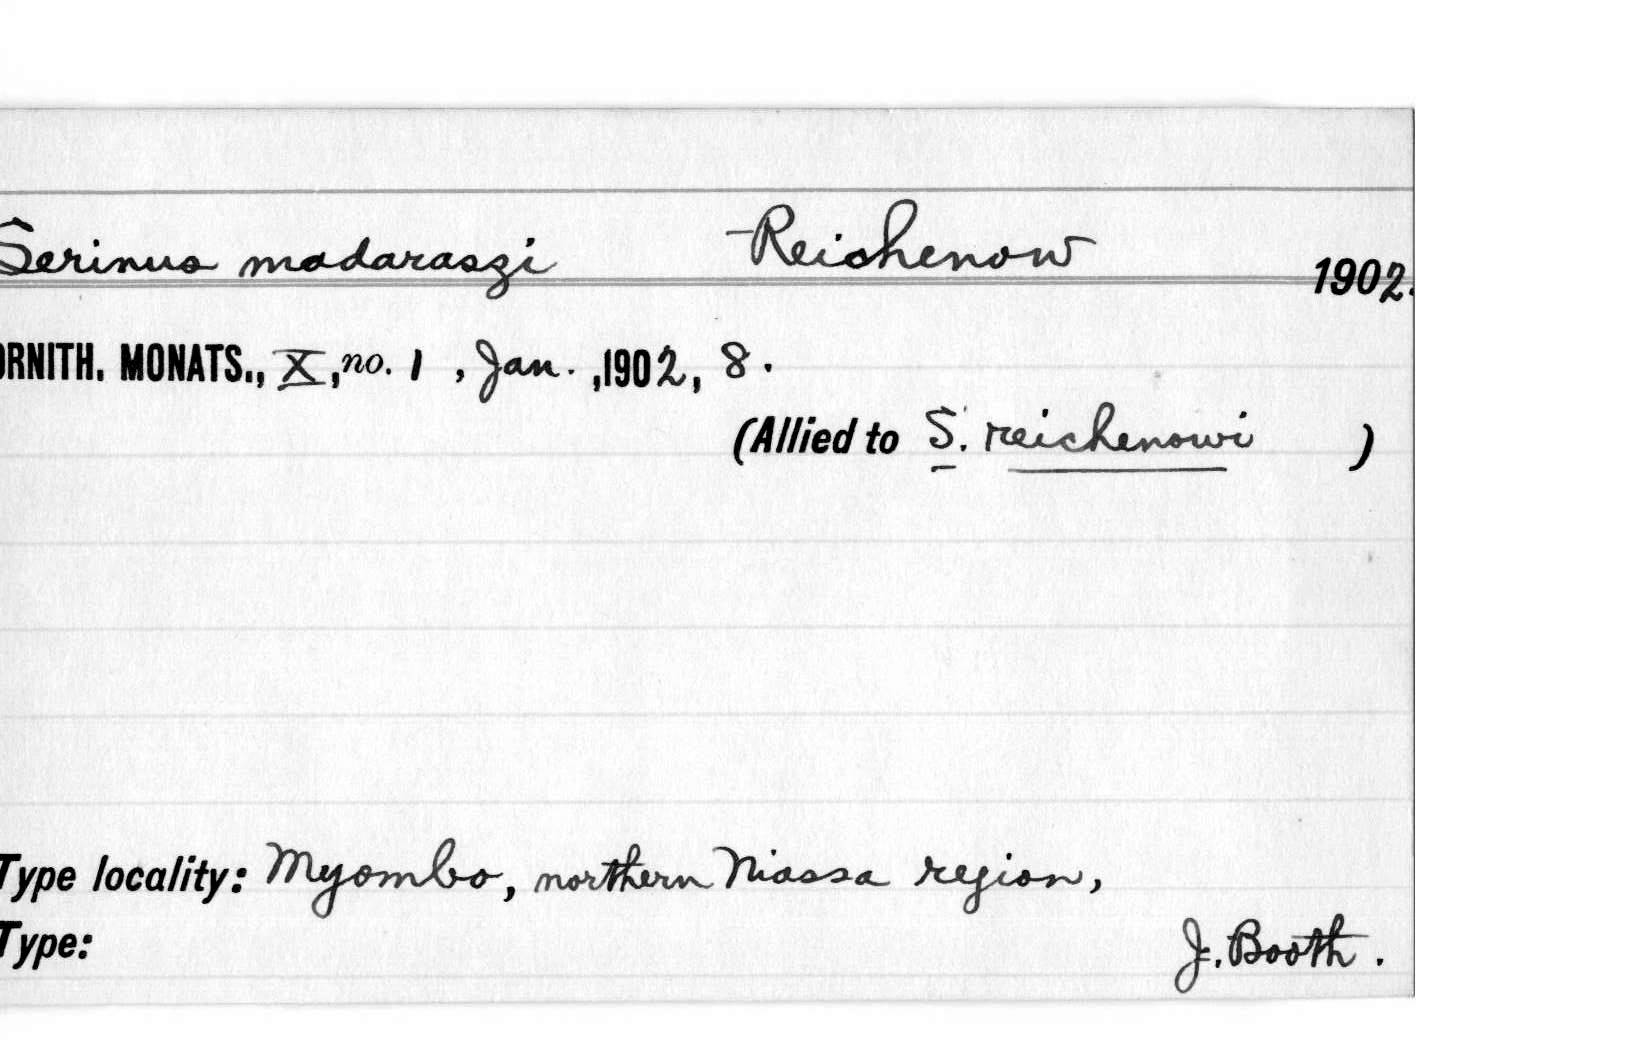 Serinus madaraszi Reichenow 1902.
ORNITH. MONATS., X, no. 1, Jan., 1902, 8.
(Allied to S. reichenowi )
Type locality: Myombo, northern Niassa region,
Type: J. Booth.